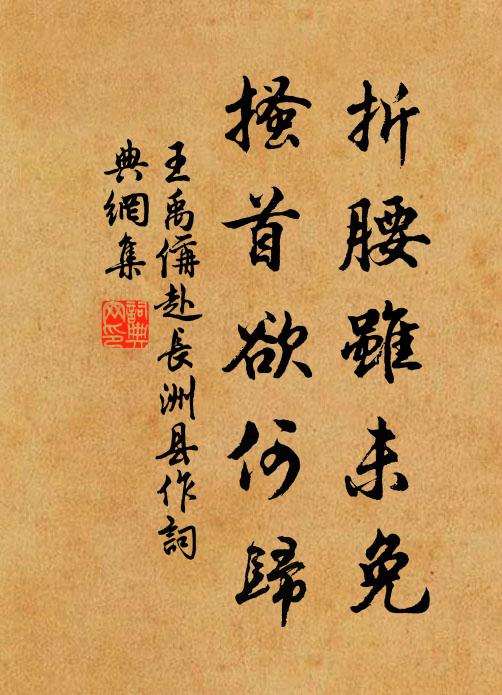 折腰雖未免
搔首欲何歸
王禹偁赴長洲县作詞
典網集
詞典
网印